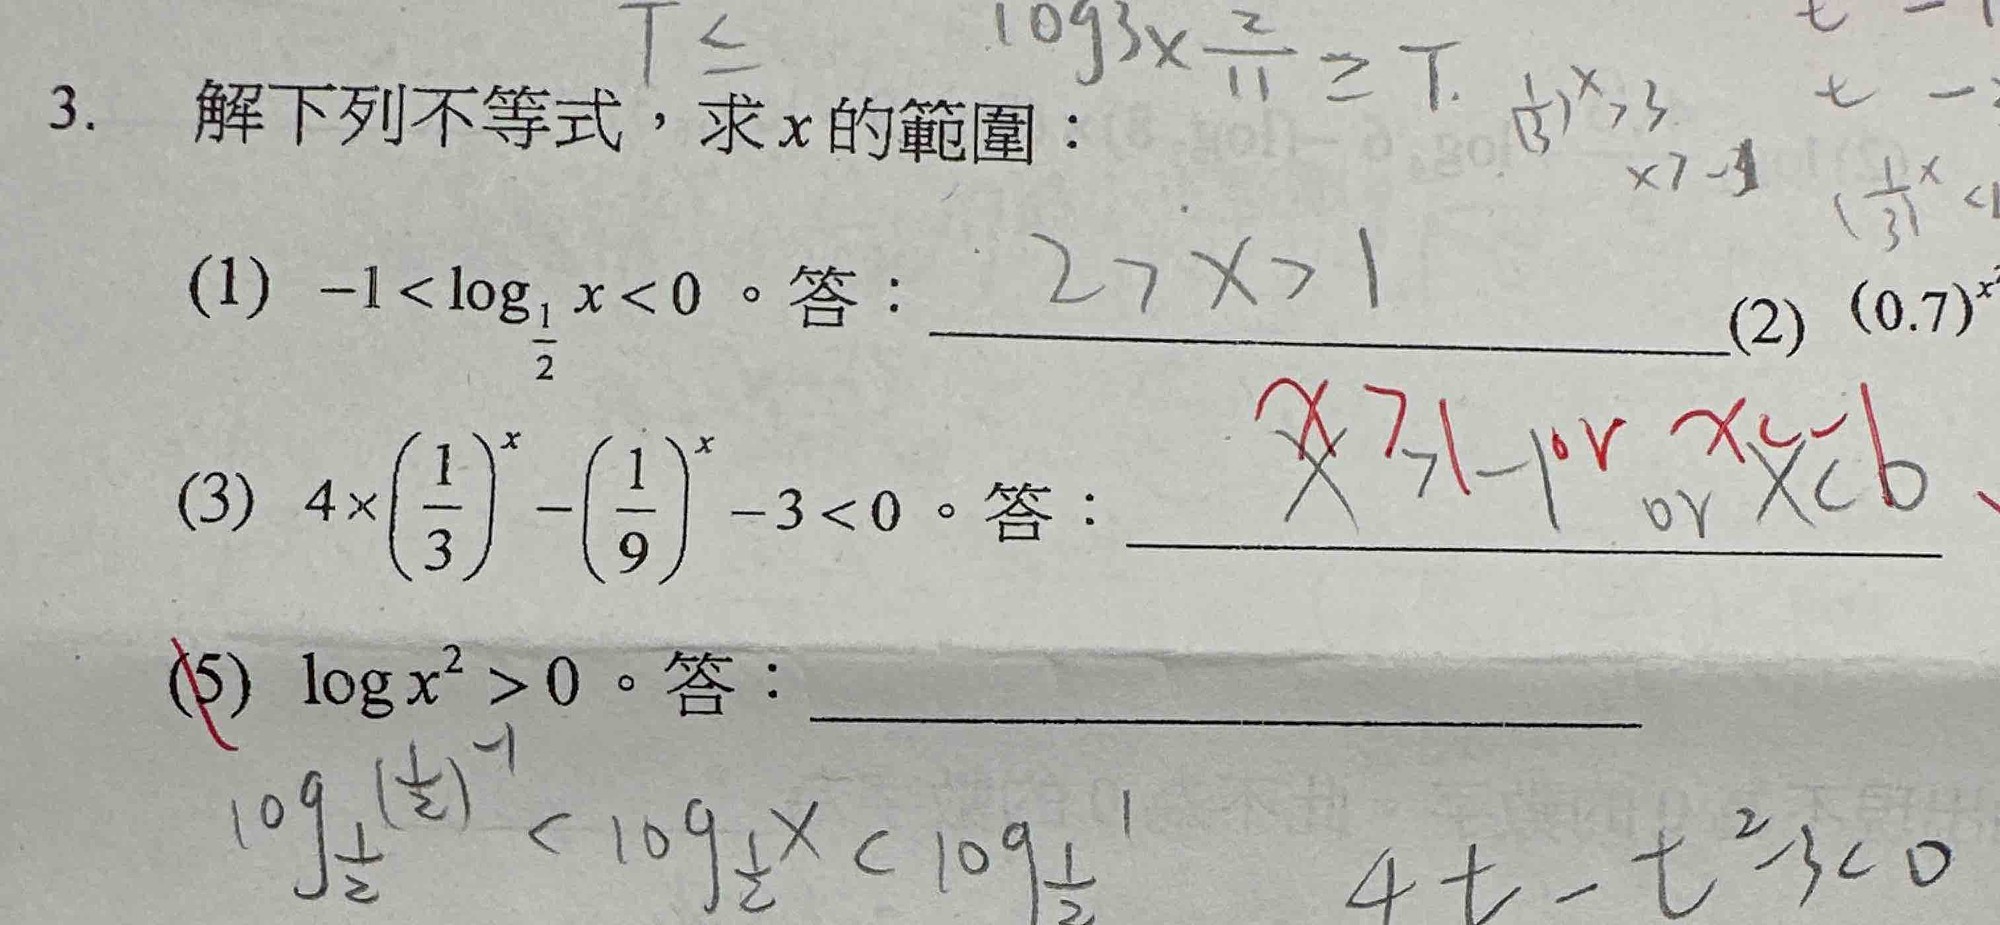 T ≤ log3 × 2/11 ≥ T.
t -
t -
3. 解下列不等式，求 x 的範圍：
(1/3)^x > 3
x > -1
(1/3)^x < 1
(1) -1 < log_{1/2} x < 0 。答： 2 > x > 1
(2) (0.7)^{x^2
x > -1 or x < 0
(3) 4×(1/3)^x - (1/9)^x - 3 < 0 。答：
(5) log x^2 > 0 。答：
log_{1/2} (1/2)^{-1} < log_{1/2} x < log_{1/2} 1
4t - t^2 - 3 < 0